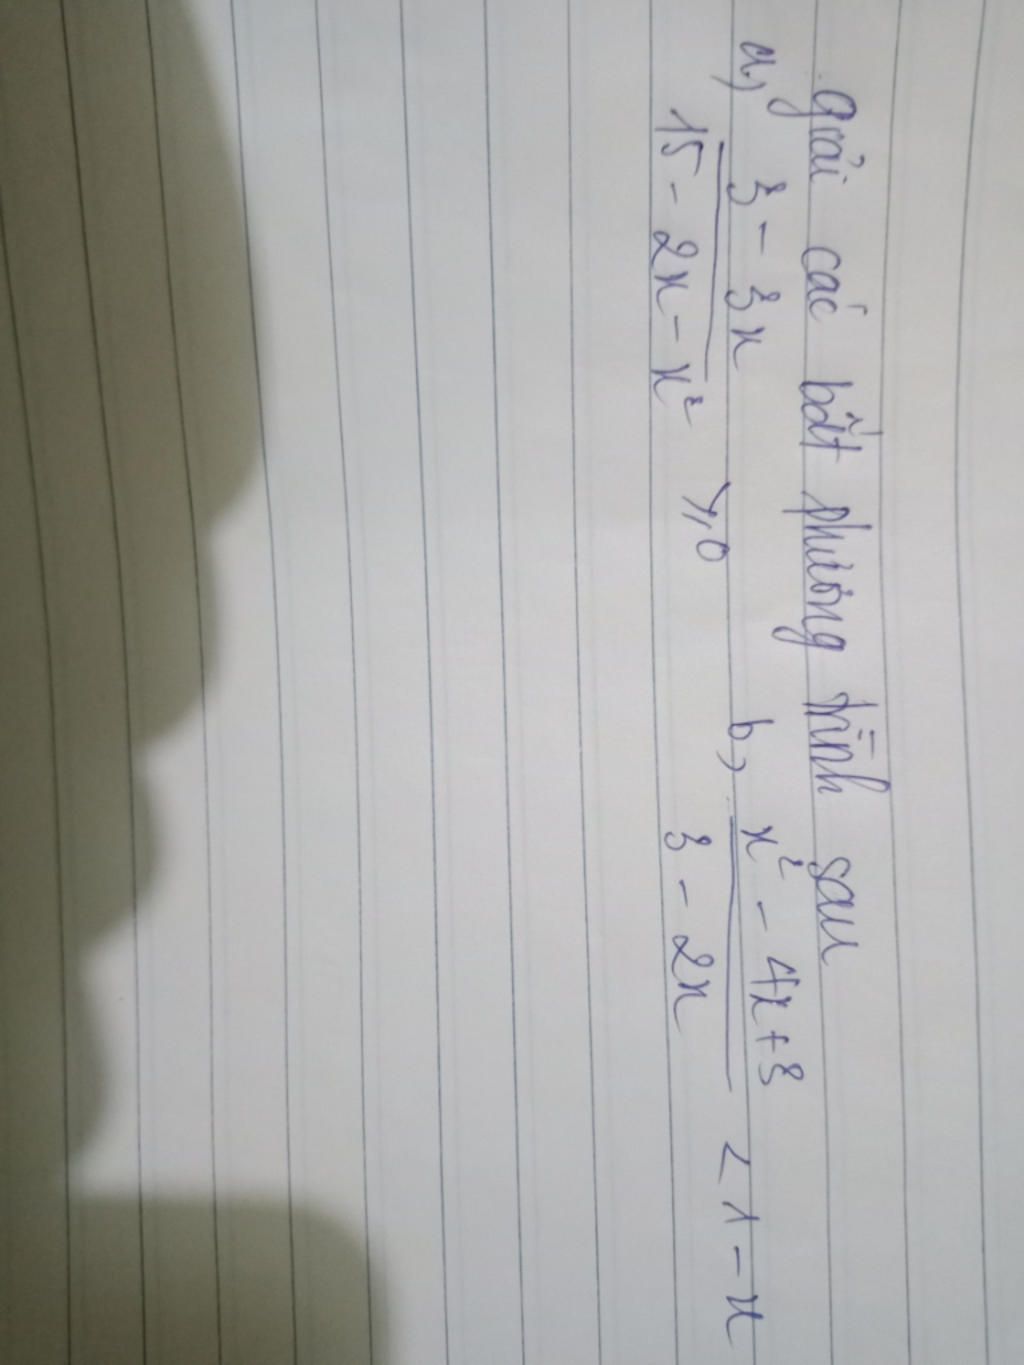 giải các bất phương trình sau
a, 3 - 3x / 15 - 2x - x² ≥ 0 b, x² - 4x + 3 / 3 - 2x < 1 - x